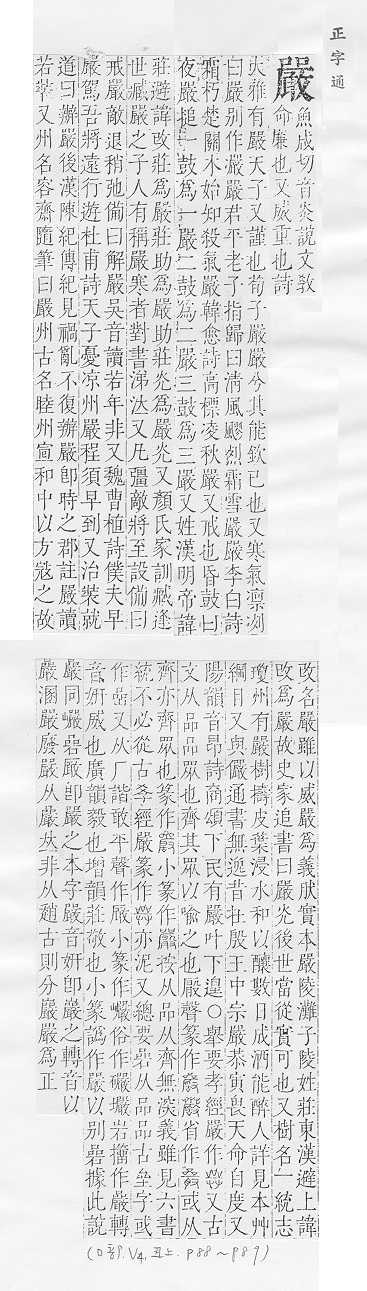 正字通
嚴
魚成切音炎說文敎
命㥕也又威重也詩
大雅有嚴天子又謹也荀子嚴嚴兮其能敬己也又寒氣凛冽
曰嚴别作嚴嚴君平老子指歸曰清風飂烈霜雪嚴嚴李白詩
霜朽楚關木始知殺氣嚴韓愈詩高標凌秋嚴又戒也昏鼓曰
夜嚴搥一鼓爲一嚴二鼓爲二嚴三鼓爲三嚴又姓漢明帝諱
莊避諱改莊爲嚴莊助爲嚴助莊光爲嚴光又顏氏家訓臧逢
世臧嚴之子人有稱嚴寒者對書涕泣又凡彊敵將至設備曰
戒嚴敵退稍弛備曰解嚴吴音讀若年非又魏曹植詩僕夫早
嚴駕吾將遠行遊杜甫詩天子憂凉州嚴程須早到又治裝就
道曰辦嚴後漢陳紀傳紀見禍亂不復辦嚴卽時之郡註嚴讀
若裝又州名容齋隨筆曰嚴州古名睦州宣和中以方寇之故
改名嚴雖以威嚴爲義肰實本嚴陵灘子陵姓莊東漢避上諱
改爲嚴故史家追書曰嚴光後世當從實可也又樹名一統志
瓊州有嚴樹擣皮葉浸水和以釀數日成酒能醉人詳見本艸
綱目又與儼通書無逸昔在殷王中宗嚴恭寅畏天命自度又
陽韻音昂詩商頌下民有嚴叶下遑○舉要孝經嚴作 又古
文从品品眾也齊其眾以喻之也厰聲篆作 省作 或从
齊亦齊眾也篆作 小篆作 按从品从齊無深義雖見六書
統不必從古孝經嚴篆作 亦泥又總要 从品品古坙字或
作嵒又从厂諧敢平聲作嚴小篆作巗俗作礹壧岩 作嚴轉
音妍威也廣韻毅也增韻莊敬也小篆譌作嚴以别 據此說
嚴同巗 厰卽嚴之本字嚴音妍卽巖之轉音以
嚴溷嚴廢嚴从 非从 古則分巖嚴爲正
V4. 丑上. P88～P89)